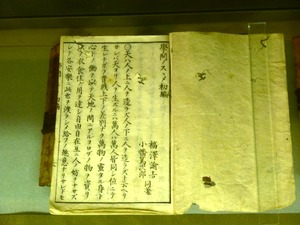 學問ノスヽメ 初編
福澤諭吉
小幡篤次郎 同著
〇天ハ人ノ上ニ人ヲ造ラズ人ノ下ニ人ヲ造ラズト云ヘリ
サレバ天ヨリ人ヲ生ズルニハ萬人ハ萬人皆同ジ位ニテ
生レナガラ貴賤上下ノ差別ナク萬物ノ靈タル身ト
心トノ働ヲ以テ天地ノ間ニアルヨロヅノ物ヲ資リ
以テ衣食住ノ用ヲ達シ自由自在互ニ人ノ妨ヲナサズ
シテ各安樂ニ此世ヲ渡ラシメ給フノ趣意ナリサレドモ